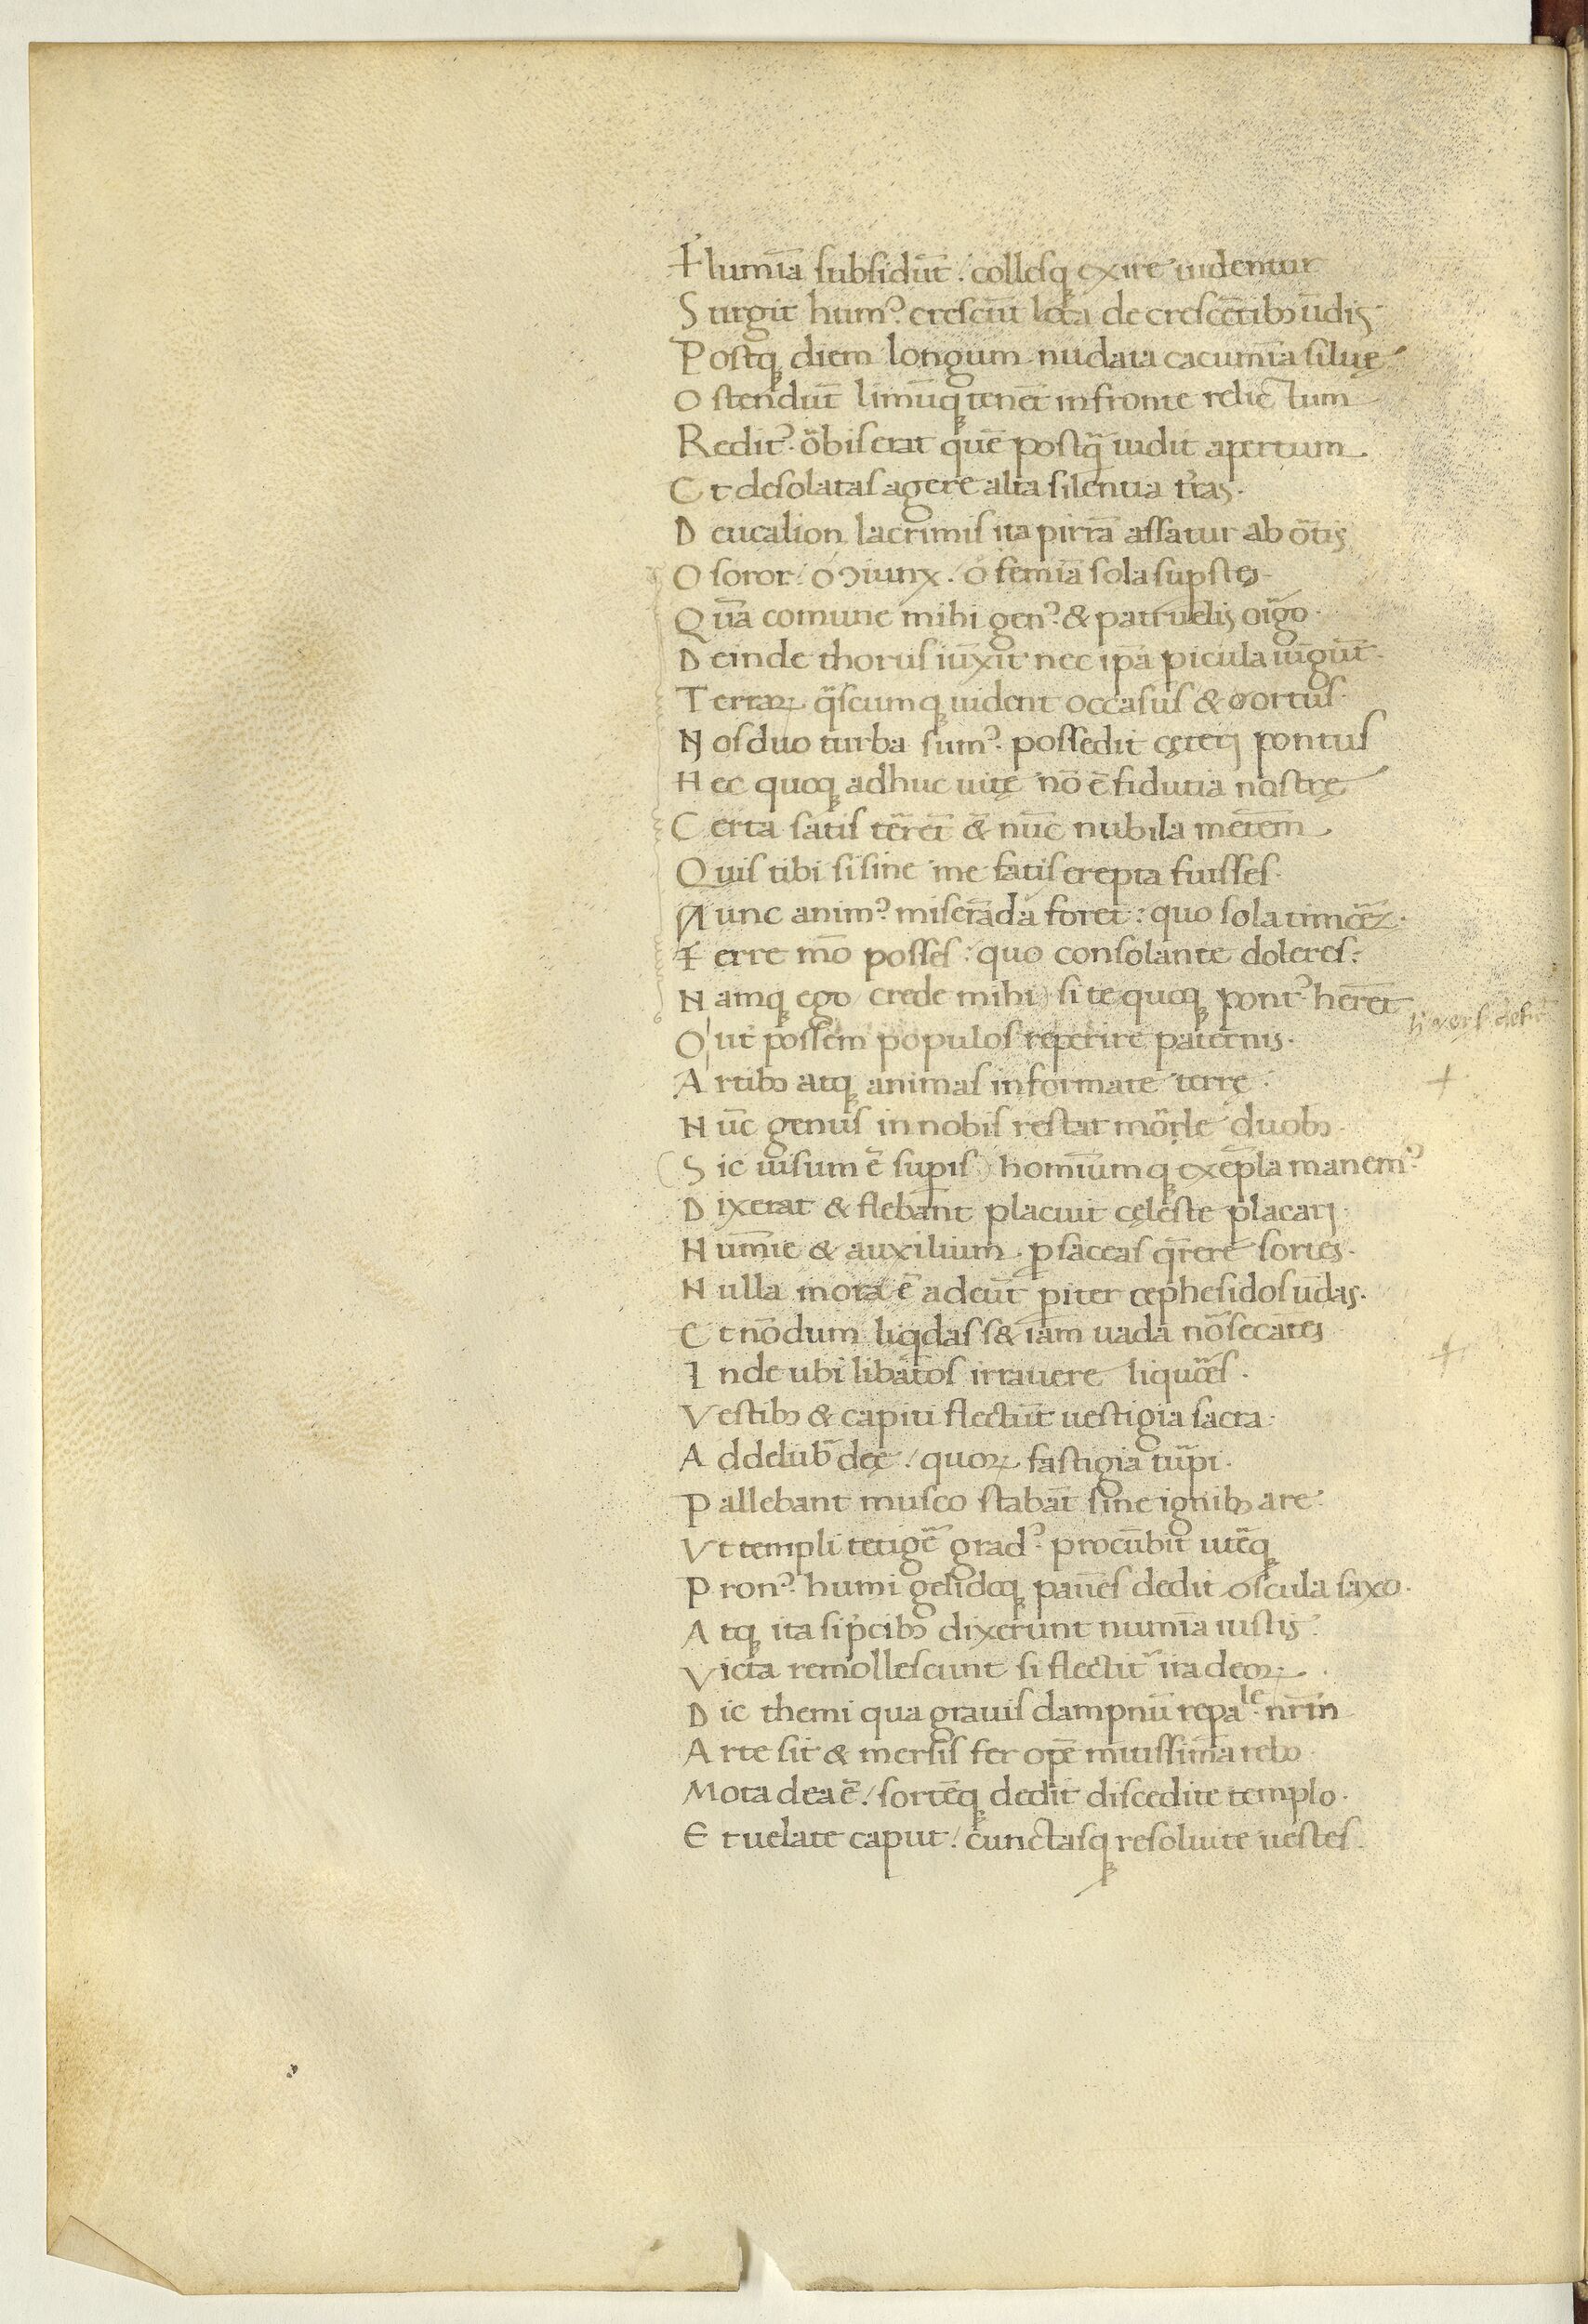 Flumīa subsidūt. collesq; exire uidentur
Surgit hum⁹. crescūt loca decrescētib; ūdis
Postq; diem longum nudata cacumīa siluę
Ostendūt limūq; tenēt infronte relictum
Reddit⁹. orbis erat quē postq̃ uidit apertum
Et desolatas agere alta silentia t̄ras.
Deucalion lacrimis ita pirrā affatur abōtis
O soror. o ↄiunx. o femīa sola sup̄stes
Quā comune mihi gen⁹. & patruelis oīgo.
Deinde thorus iūxit nec ip̄a picula iūgūt.
Terraꝝ q̃scumq; uident occasus & o ortus.
Nos duo turba sum⁹. possedit cęterj pontus
Hec quoq; adhuc uitę nō ē fidutia nostrę
Certa satis tēret̄ & nūc nubila mētem
Quis tibi si sine me fatis erepta fuisses.
Nunc anim⁹. miserāda foret. quo sola timorē
Ferre mō posses. quo consolante doleres.
Namq; ego (crede mihi) si te quoq; pont⁹. hēret
O ut possem populos reperire paternis.
Artib; atq; animas informate terrę.
Nūc genus in nobis restat mōrle duob;
(Sic uisum ē supis) homīumq; exēpla manem⁹.
Dixerat & flebant placuit cęleste placarj.
Numīe & auxilium. p sacras q̄rere sortes.
Nulla mora ē adeūt piter cephesidos ūdas.
Et nōdum liqdas s& iam uada nōsecātes
Inde ubi libātos irrauere liquōres.
Vestib; & capiti flectūt uestigia sacra.
Addelub̄ deę. quoꝝ fastigia tūpi.
Pallebant musco stabāt sine ignib; are.
Vt templi tetigē grad⁹. procūbit utēq;
Pron⁹. humi gelidoq; pauēs dedit oscula saxo.
Atq; ita si p̄cib; dixerunt numīa iustis.
Victa remollescunt si flectit̄ ira deoꝝ.
Dic themi qua grauis dampnū repale. nr̄in
Arte sit & mersis fer opē mitissīma reb;
Mota dea ē. sortēq; dedit discedite templo.
Et uelate caput. cunctasq; resoluite uestes.